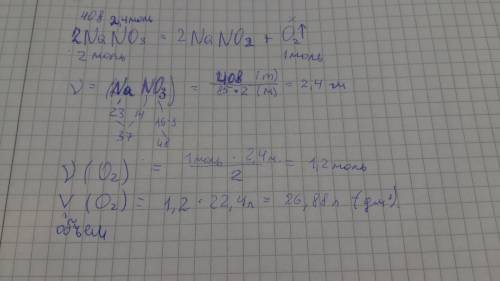 408 2,4моль
2NaNO3 = 2NaNO2 + O2↑
2 моль 1моль
ν = (NaNO3) = 408 (m) / 85·2 (M) = 2,4 м
23 14 16·3
37 48
ν (O2) = 1моль · 2,4м / 2 = 1,2моль
V (O2) = 1,2 · 22,4л = 26,88л (дм³)
объем